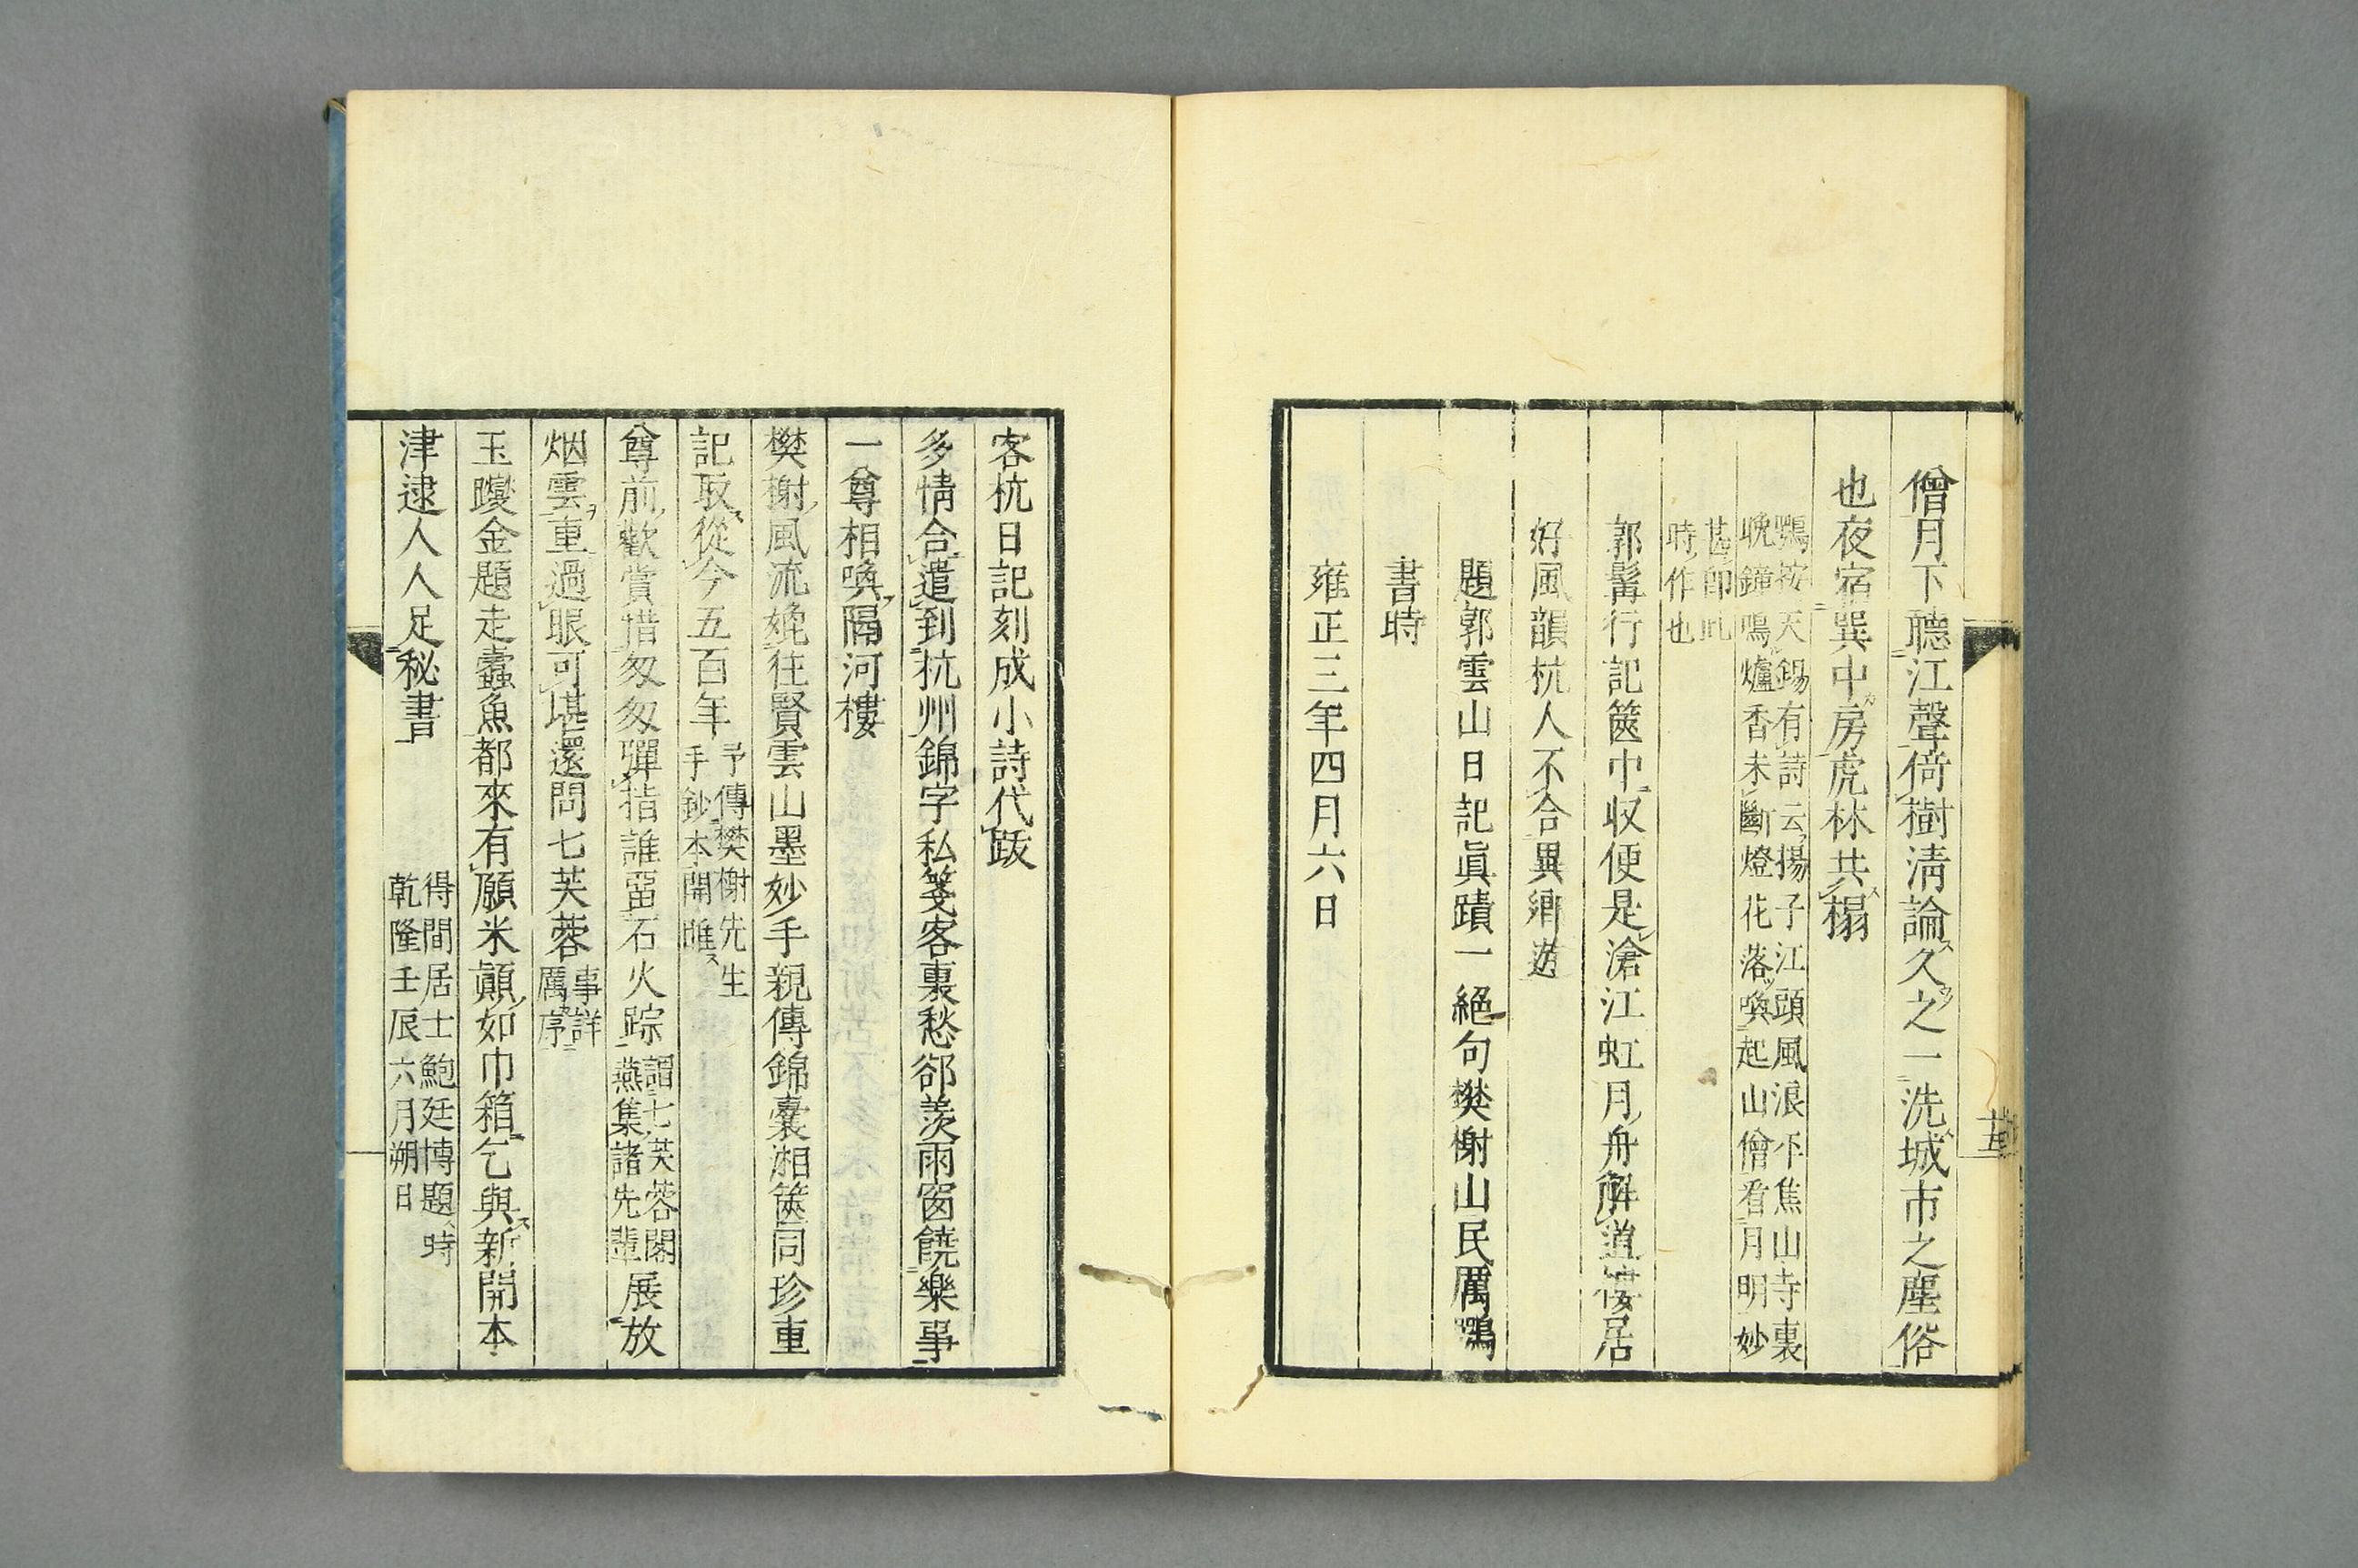 僧月下聽江聲倚樹淸論久之一洗城市之塵俗
也夜宿巽中房虎林共榻
鶚按天錫有詩云揚子江頭風浪平焦山寺裏
晩鐘鳴爐香未斷燈花落喚起山僧看月明妙
甚卽此
時作也
郭髯行記篋中収便是滄江虹月舟解道樓居
好風韻杭人不合異鄕遊
題郭雲山日記眞蹟一絕句樊榭山民厲鶚
書時
雍正三年四月六日
五
客杭日記刻成小詩代跋
多情合遣到杭州錦字私箋客裏愁郤羨雨窗饒樂事
一尊相喚隔河樓
樊榭風流繞往賢雲山墨妙手親傳錦囊湘篋同珍重
記取從今五百年
予傳樊榭先生
手鈔本開雕
尊前歡賞惜匆匆彈指誰畱石火踪
謂七芙蓉閣
燕集諸先輩
展放
烟雲重過眼可堪還問七芙蓉
事詳
厲序
玉躞金題走蠹魚都來有願米顚如巾箱乞與新開本
津逮人人足秘書
得間居士鮑廷博題時
乾隆壬辰六月朔日